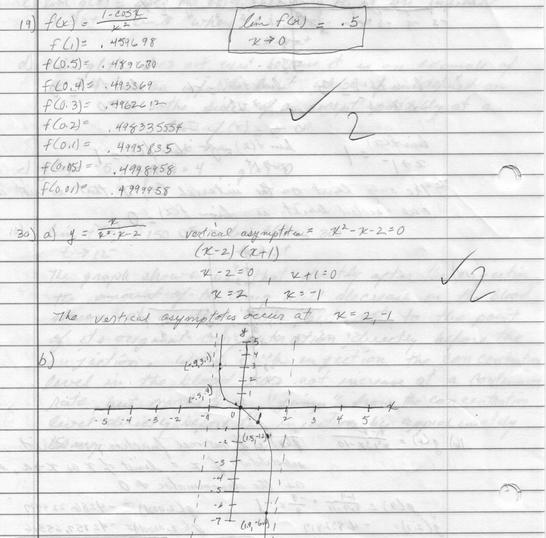 19) f(x) = 1-cosx / x²
lim f(x) = .5
x→0
f(1) = .459698
f(0.5) = .489670
f(0.4) = .493369
f(0.3) = .4962612
f(0.2) = .498335554
f(0.1) = .4995835
f(0.05) = .4998958
f(0.01) = .4999958
2
30) a) y = x / x²-x-2 vertical asymptotes = x²-x-2=0
(x-2) (x+1)
x-2=0, x+1=0
x=2, x=-1
2
The vertical asymptotes occur at x = 2,-1
b)
y
5
4
3
2
1
(-.9,3.1)
(-.5,.4)
-5 -4 -3 -2 -1 0 1 2 3 4 5 x
-1
-2
(1.5,-1.2)
-3
-4
-5
-6
-7